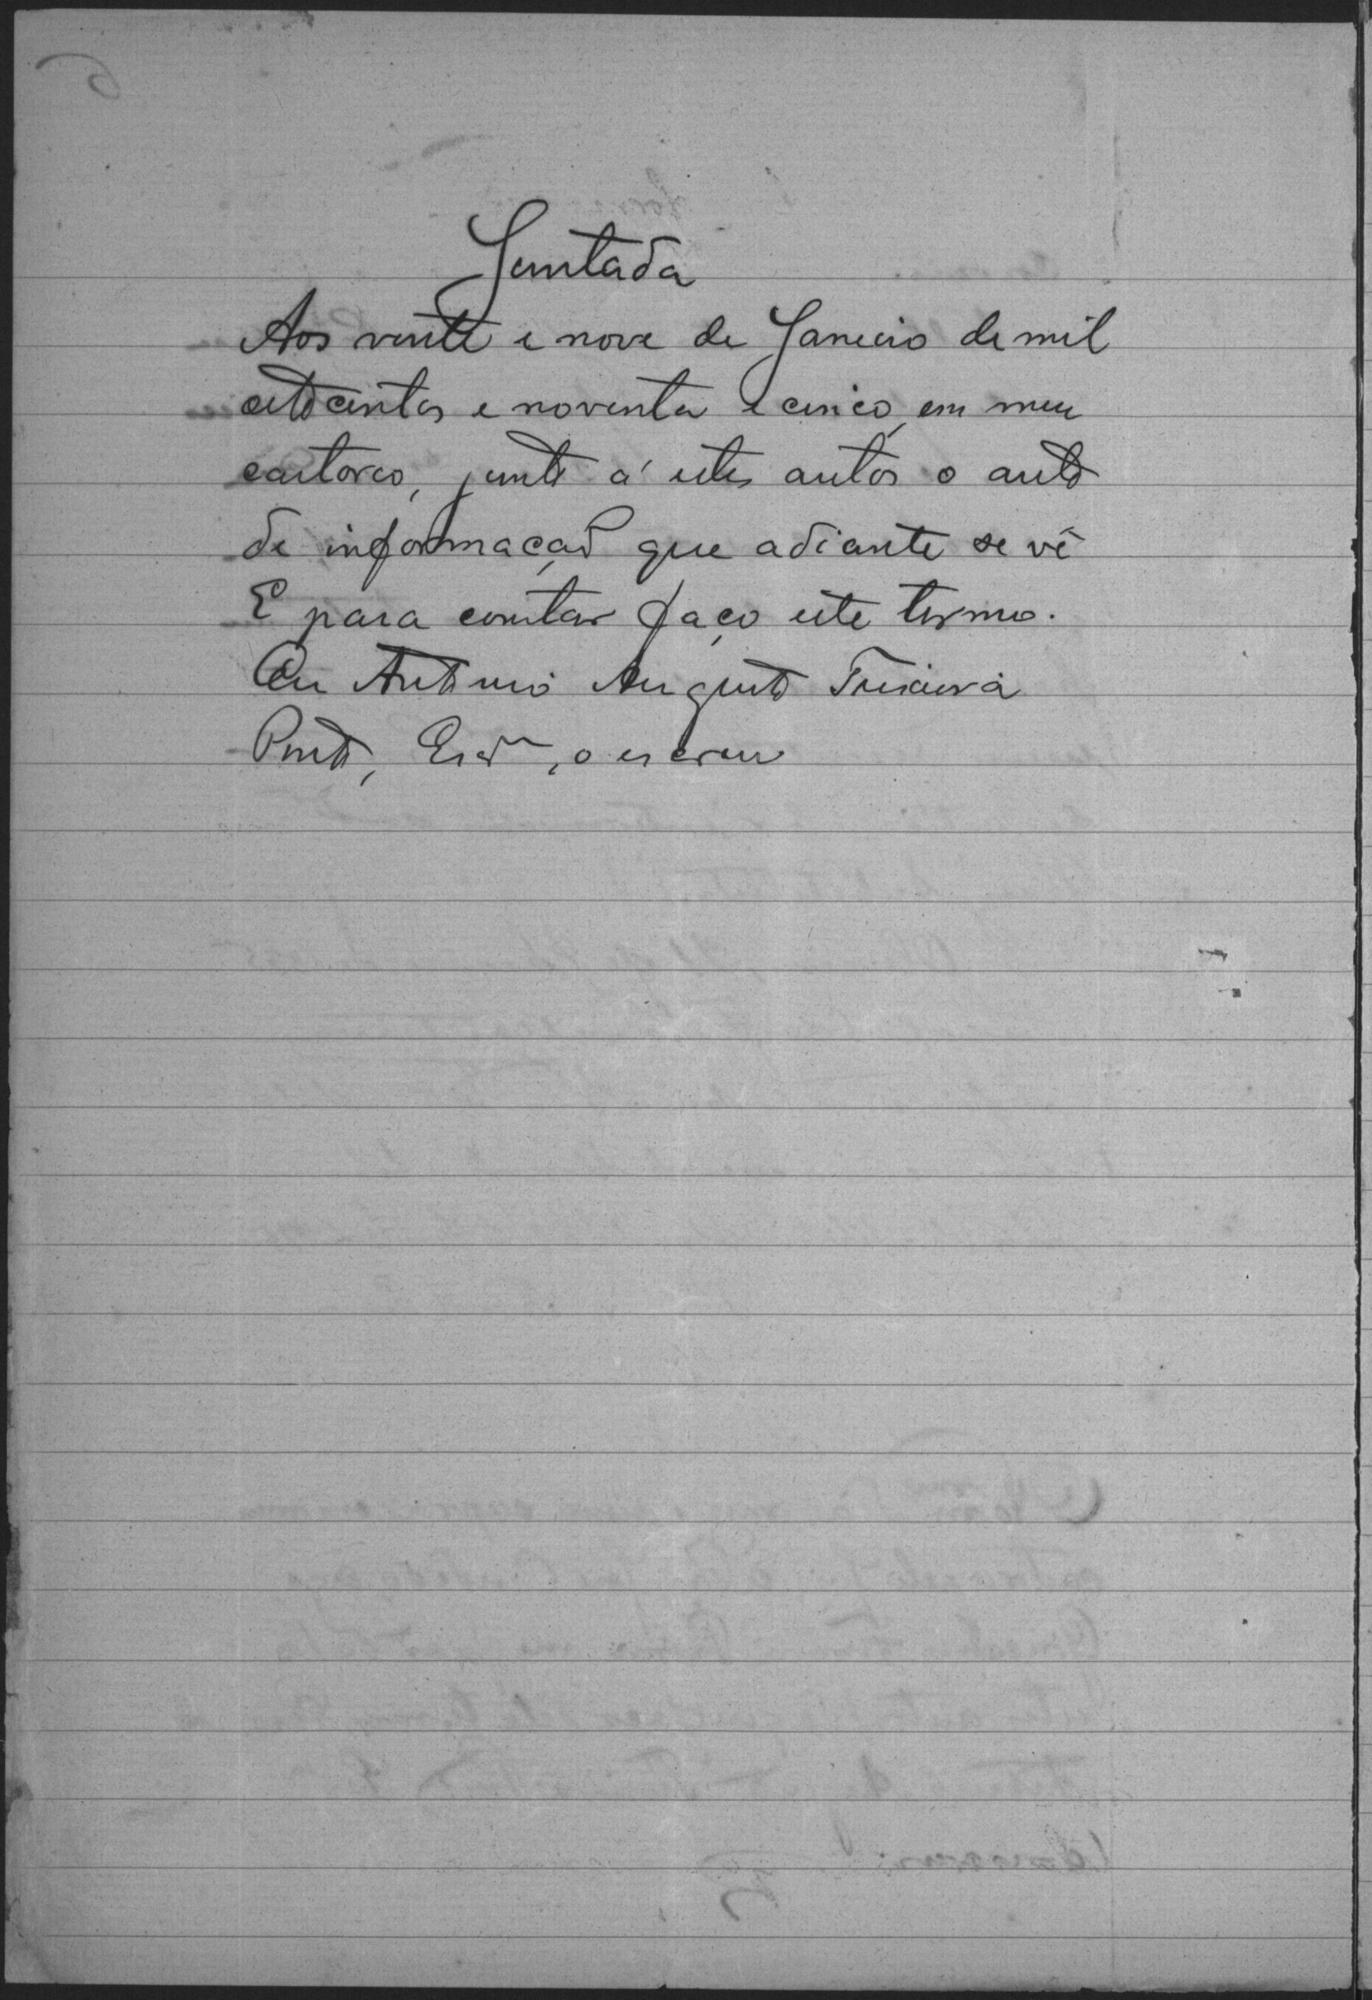 Juntada
Aos vinte e nove de Janeiro de mil
oitocentos e noventa e cinco, em meu
cartorio, junto á estes autos o auto
de informação que adiante se vê
E para constar faço este termo.
Eu Antonio Augusto Teixeira
Pinto, Escrm, o escrevi